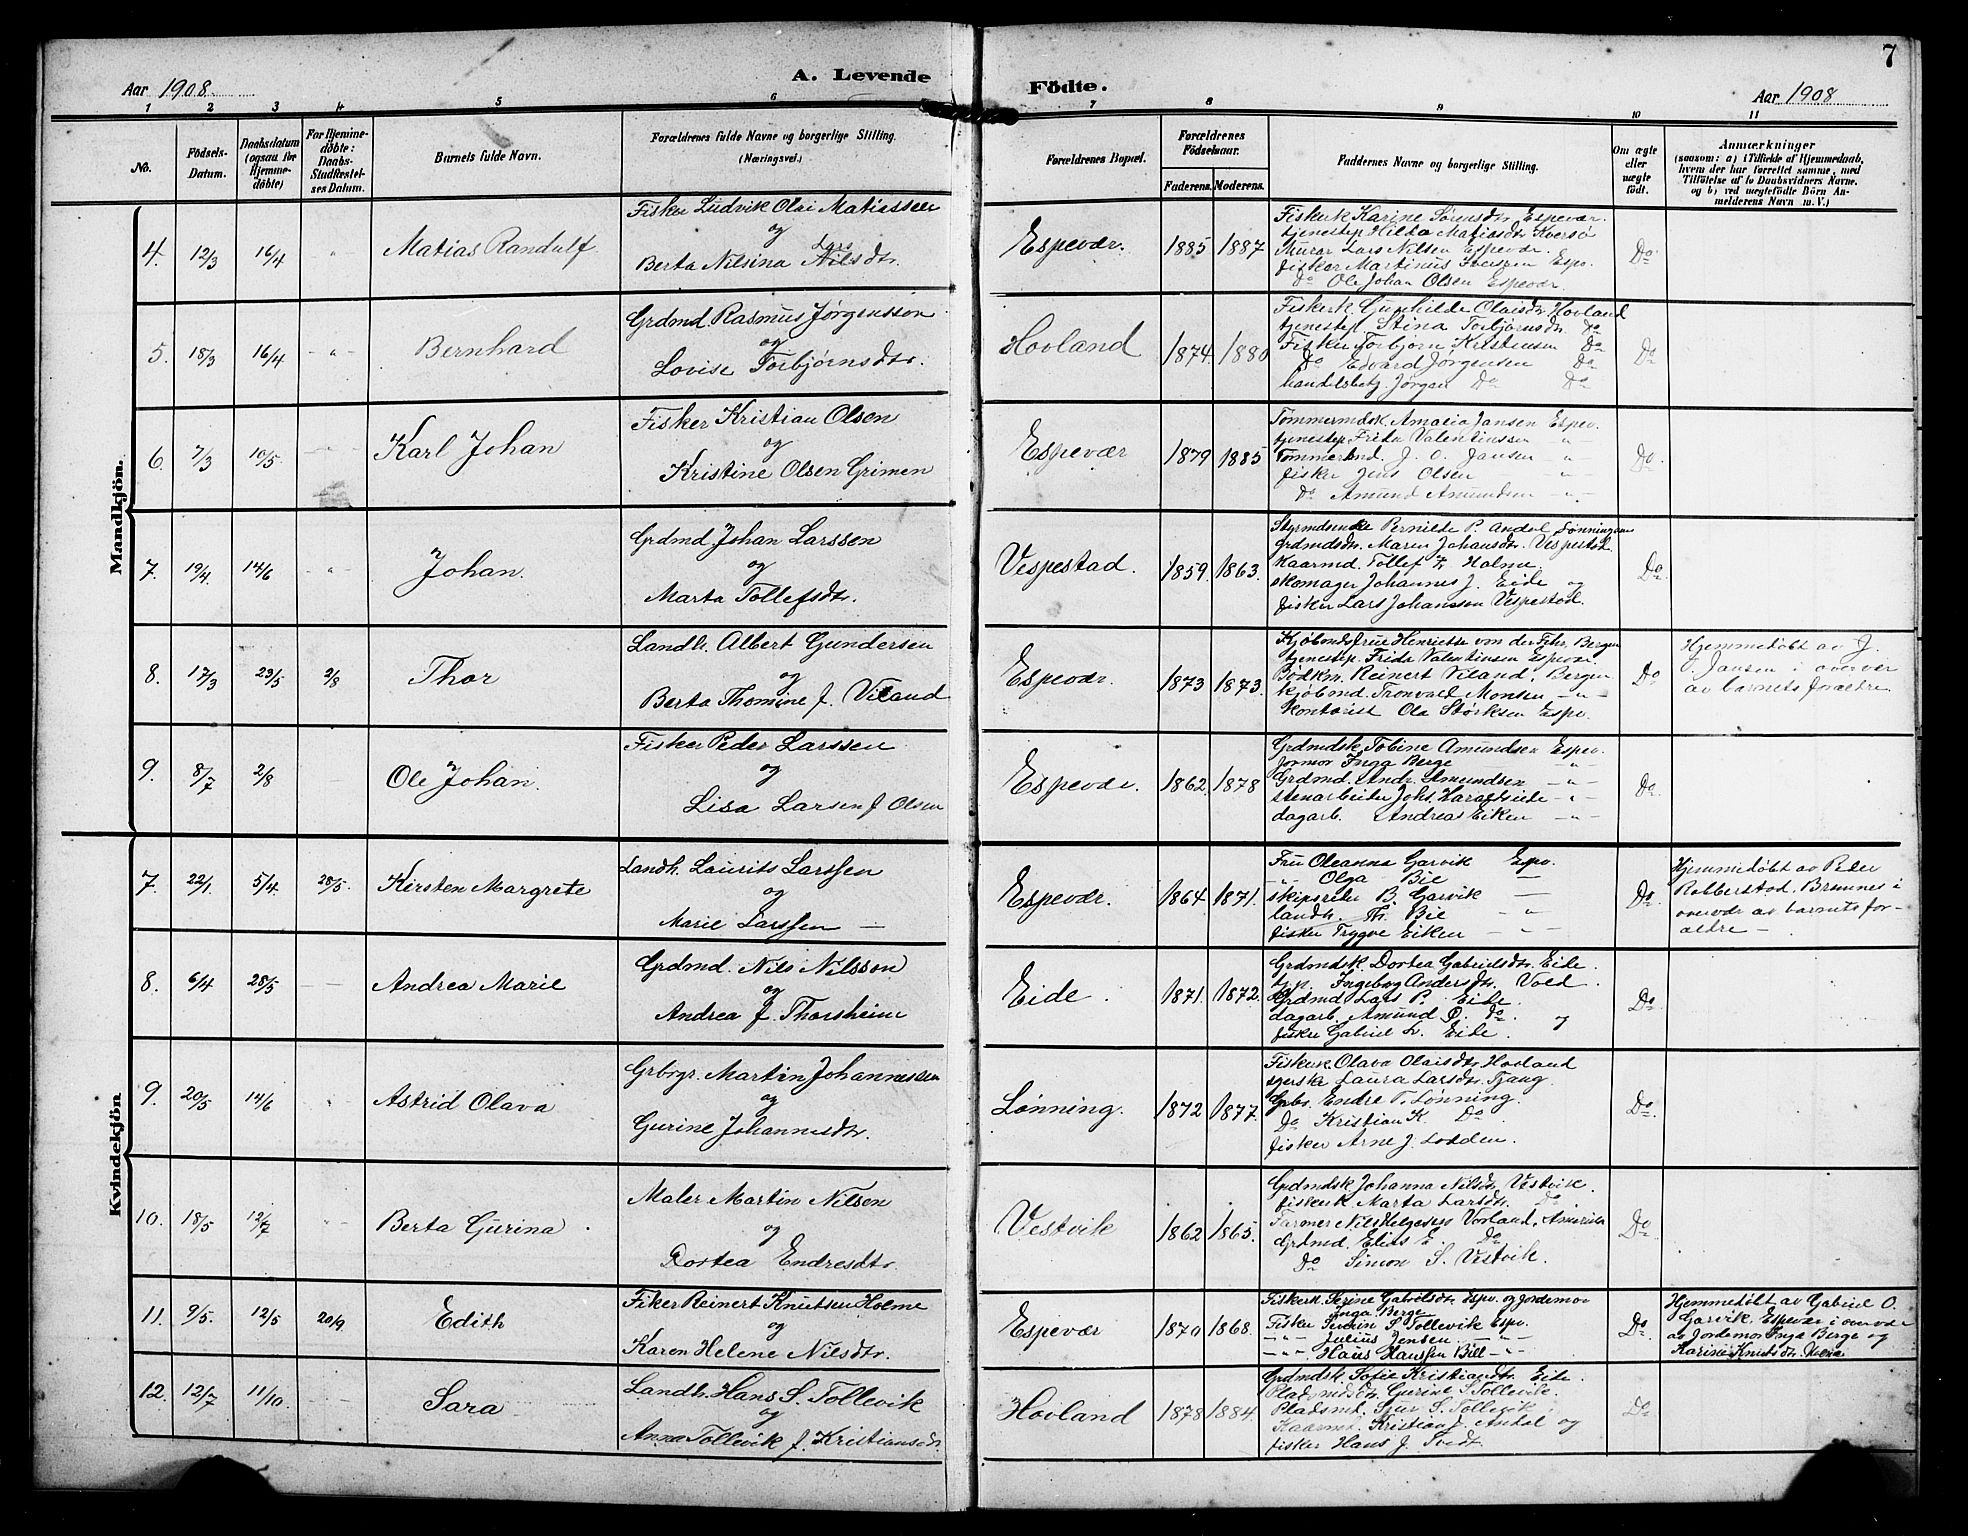 7
A. Levende Födte.
Aar 1908
Aar 1908
1 2 3 4 5 6 7 8 9 10 11
No.
Födsels-
Datum.
Daabsdatum
(ogsaa for
Hjemme-
döbte)
For Hjemme-
döbte:
Daabs-
Stadfæstel-
ses Datum.
Barnets fulde Navn.
Forældrenes fulde Navne og borgerlige Stilling.
(Næringsvei.)
Forældrenes Bopæl.
Forældrenes
Födselsaar.
Faderens. Moderens.
Faddernes Navne og borgerlige Stilling.
Om ægte
eller
uægte
födt.
Anmærkninger
(saasom: a) i Tilfælde af Hjemmedaab,
hvem der har forrettet samme, med
Tilföielse af to Daabsvidners Navne,
og b) ved uægtefödte Börn An-
melderens Navn m. V.)
Mandkjön.
4. 12/3 16/4 " Matias Randulf
Fisker Ludvik Olai Matiassen
og
Lars
Berta Nilsina Nilsdtr.
Espevær. 1885 1887
Fiskerk Karine Sørensdtr Espevær.
tjenestep Hilda Matiasdtr Kversø
Murar Lars Nilsen Espevær
fisker Martinus Iversen Espv.
Do Ole Johan Olsen Espevær.
Do
5. 18/3 16/4 - " - Bernhard
Grdmd Rasmus Jørgensson
og
Lovise Torbjørnsdtr.
Hovland 1874 1880
Fiskerk Gunhilde Olaisdtr Hovland
tjenestep Stina Torbjørnsdtr Do
Fisker Torbjørn Kristensen Do
Do Edvard Jørgensen Do
handelsbetj. Jørgen Do Do
Do
6. 7/3 10/5. Karl Johan
Fisker Kristian Olsen
og
Kristine Olsen Grimen
Espevær 1879 1885
Tømmermdsk Amalia Jansen Espev.
tjenestep Frida Valentinssen "
Tømmermd J. O. Jansen "
fisker Jens Olsen "
Do Amund Amundsen - " -
Do
7. 19/4. 14/6 " Johan.
Grdmd Johan Larssen
og
Marta Tollefsdtr.
Vespestad. 1859. 1863.
Pernilte P. Andal Lønningen
Grdmdsdtr. Maren Johansdtr. Vespestad
Kaarmd. Tollef T. Holme.
skomager Johannes J. Eide og
fisker Lars Johanssen Vespestad.
Do
8. 17/3 23/5 2/8 Thor
Landh. Albert Gundersen
og
Berta Thomine f. Viland
Espevær. 1873 1873.
Kjøbmdsfrue Henriette von der Fehr, Bergen
tjenestep. Frida Valentinsen Espevær.
Bødkm. Reinert Viland, Bergen
kjøbmd. Tronvald Monsen - " -
kontorist Ola Størksen Espv.
Do
Hjemmedøbt av J.
O. Jansen i overvær
av barnets forældre
9. 8/7 2/8 Ole Johan.
Fisker Peder Larssen
og
Lisa Larsen f. Olsen
Espevær. 1862. 1878
Grdmdsk. Tobine Amundsen Espev.
Jormor Inga Berge - " -
Grdmd. Andr. Amundsen - " -
stenarbeider Johs. Haraldseide - " -
dagarb. Andreas Eiken - " -
Do.
Kvindekjön
7. 22/1. 5/4. 28/5. Kirsten Margrete
Landh. Laurits Larssen
og
Marie Larssen —
Espevær. 1864 1871.
Fru Oleanna Garvik Espv.
- " - Olga Bie —
skipsreder B. Garvik —
landh. Th. Bie - "
fisker Trygve Eiken - " -
Do
Hjemmedøbt av Peder
Robberstad, Bremnes i
overvær av barnets for-
ældre —
8. 6/4 28/5 Andrea Marie
Grdmd. Nils Nilsson
og
Andrea f. Thorsheim
Eide. 1871. 1872.
Grdmdsk. Dortea Gabrielsdtr. Eide.
tjp. Ingeborg Andersdtr. Vold.
Grdmd Lars P. Eide.
dagarb. Amund P. Do. og
fisker Gabriel L. Eide.
Do.
9. 20/5 14/6 Astrid Olava
Grbrgr. Martin Johannessen
og
Gurine Johannesdtr.
Lønning. 1872 1877.
Fiskerk Olava Olaisdtr. Hovland
syerske Laura Larsdtr. Tjang.
Gbr. Endre T. Lønning.
Do Kristian K. Do
fisker Arne J. Lodden.
Do.
10. 18/5 12/7 Berta Gurina.
Maler Martin Nilsen
og
Dortea Endresdtr.
Vestvik 1862 1865.
Grdmdsk Johanna Nilsdtr. Vestvik.
fiskerk Marta Larsdtr. Do
Farmer Nils Helgesen Vorland, Amerika
Grdmd. Elias E. Do
Do Simon S. Vestvik.
Do
11. 9/5. 12/5 20/9. Edith
Fiker Reinert Knutsen Holme
og
Karen Helene Nilsdtr.
Espevær 1870 1868.
Fiskerk. Serine Gabrielsdtr. Espv. og jordemor
Inga Berge
Fisker Severin S. Tollevik Espv.
- " - Julius Jensen - " -
- " - Hans Hanssen Bill - " -
Do
Hjemmedøbt av Gabriel O.
Garvik, Espevær i overvær
av Jordemor Inga Berge og
Karine Knutsdtr.
12. 12/7 11/10. Sara
Landh. Hans S. Tollevik
og
Anna Tollevik f. Kristiansdtr
Hovland 1878 1884.
Grdmdsk. Sofie Kristiansdtr. Eide.
Pladsmdsdtr. Gurine S. Tollevik.
Pladsmd. Sjur S. Tollevik.
Kaarmd. Kristian J. Andal og
fisker Hans J. Tvedt.
Do